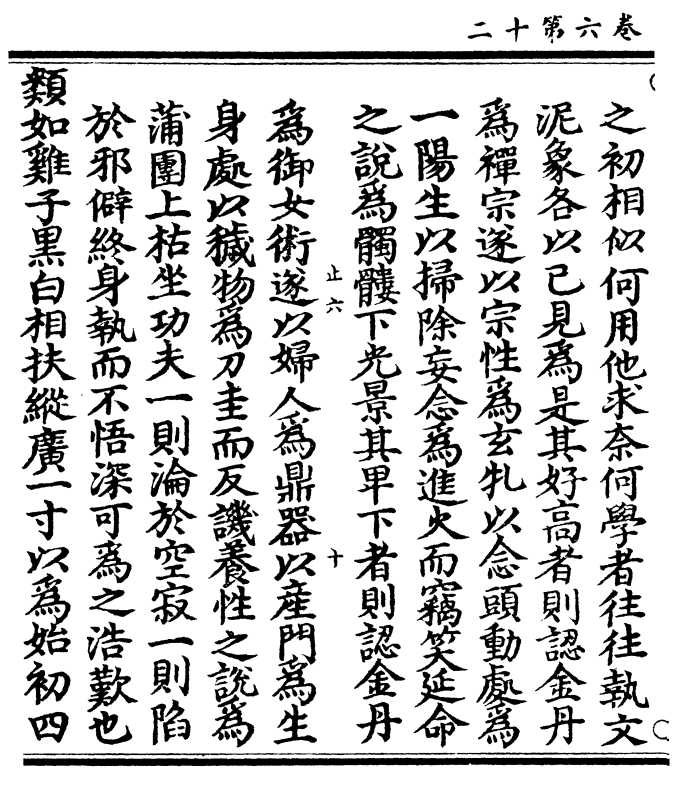 卷六第十二
之初相似何用他求奈何學者往往執文
泥象各以已見爲是其好高者則認金丹
爲禪宗遂以宗性爲玄牝以念頭動處爲
一陽生以掃除妄念爲進火而竊笑延命
之說爲髑髏下光景其卑下者則認金丹
止六 十
爲御女術遂以婦人爲鼎器以産門爲生
身處以穢物爲刀圭而反譏養性之說爲
蒲團上枯坐功夫一則淪於空寂一則陷
於邪僻終身執而不悟深可爲之浩歎也
類如雞子黑白相扶縱廣一寸以爲始初四